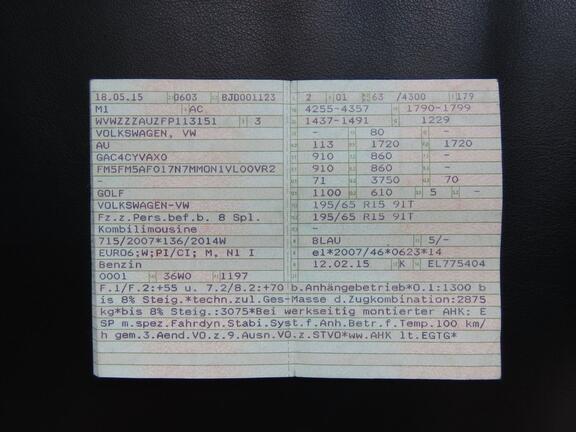 18.05.15 0603 BJD001123
M1 AC
WVWZZZAUZFP113151 3
VOLKSWAGEN, VW
AU
GAC4CYVAX0
FM5FM5AF017N7MMON1VL00VR2
-
GOLF
VOLKSWAGEN-VW
Fz.z.Pers.bef.b. 8 Spl.
Kombilimousine
715/2007*136/2014W
EURO6;W;PI/CI; M, N1 I
Benzin
0001 36W0 1197
2 01 63 /4300 179
4255-4357 1790-1799
1437-1491 1229
- 80 -
113 1720 1720
910 860 -
910 860 -
71 3750 70
1100 610 5 -
195/65 R15 91T
195/65 R15 91T
-
BLAU 5/-
e1*2007/46*0623*14
12.02.15 K EL775404
F.1/F.2:+55 u. 7.2/8.2:+70 b.Anhängebetrieb*O.1:1300 b
is 8% Steig.*techn.zul.Ges-Masse d.Zugkombination:2875
kg*bis 8% Steig.:3075*Bei werkseitig montierter AHK: E
SP m.spez.Fahrdyn.Stabi.Syst.f.Anh.Betr.f.Temp.100 km/
h gem.3.Aend.VO.z.9.Ausn.VO.z.STVO*ww.AHK lt.EGTG*